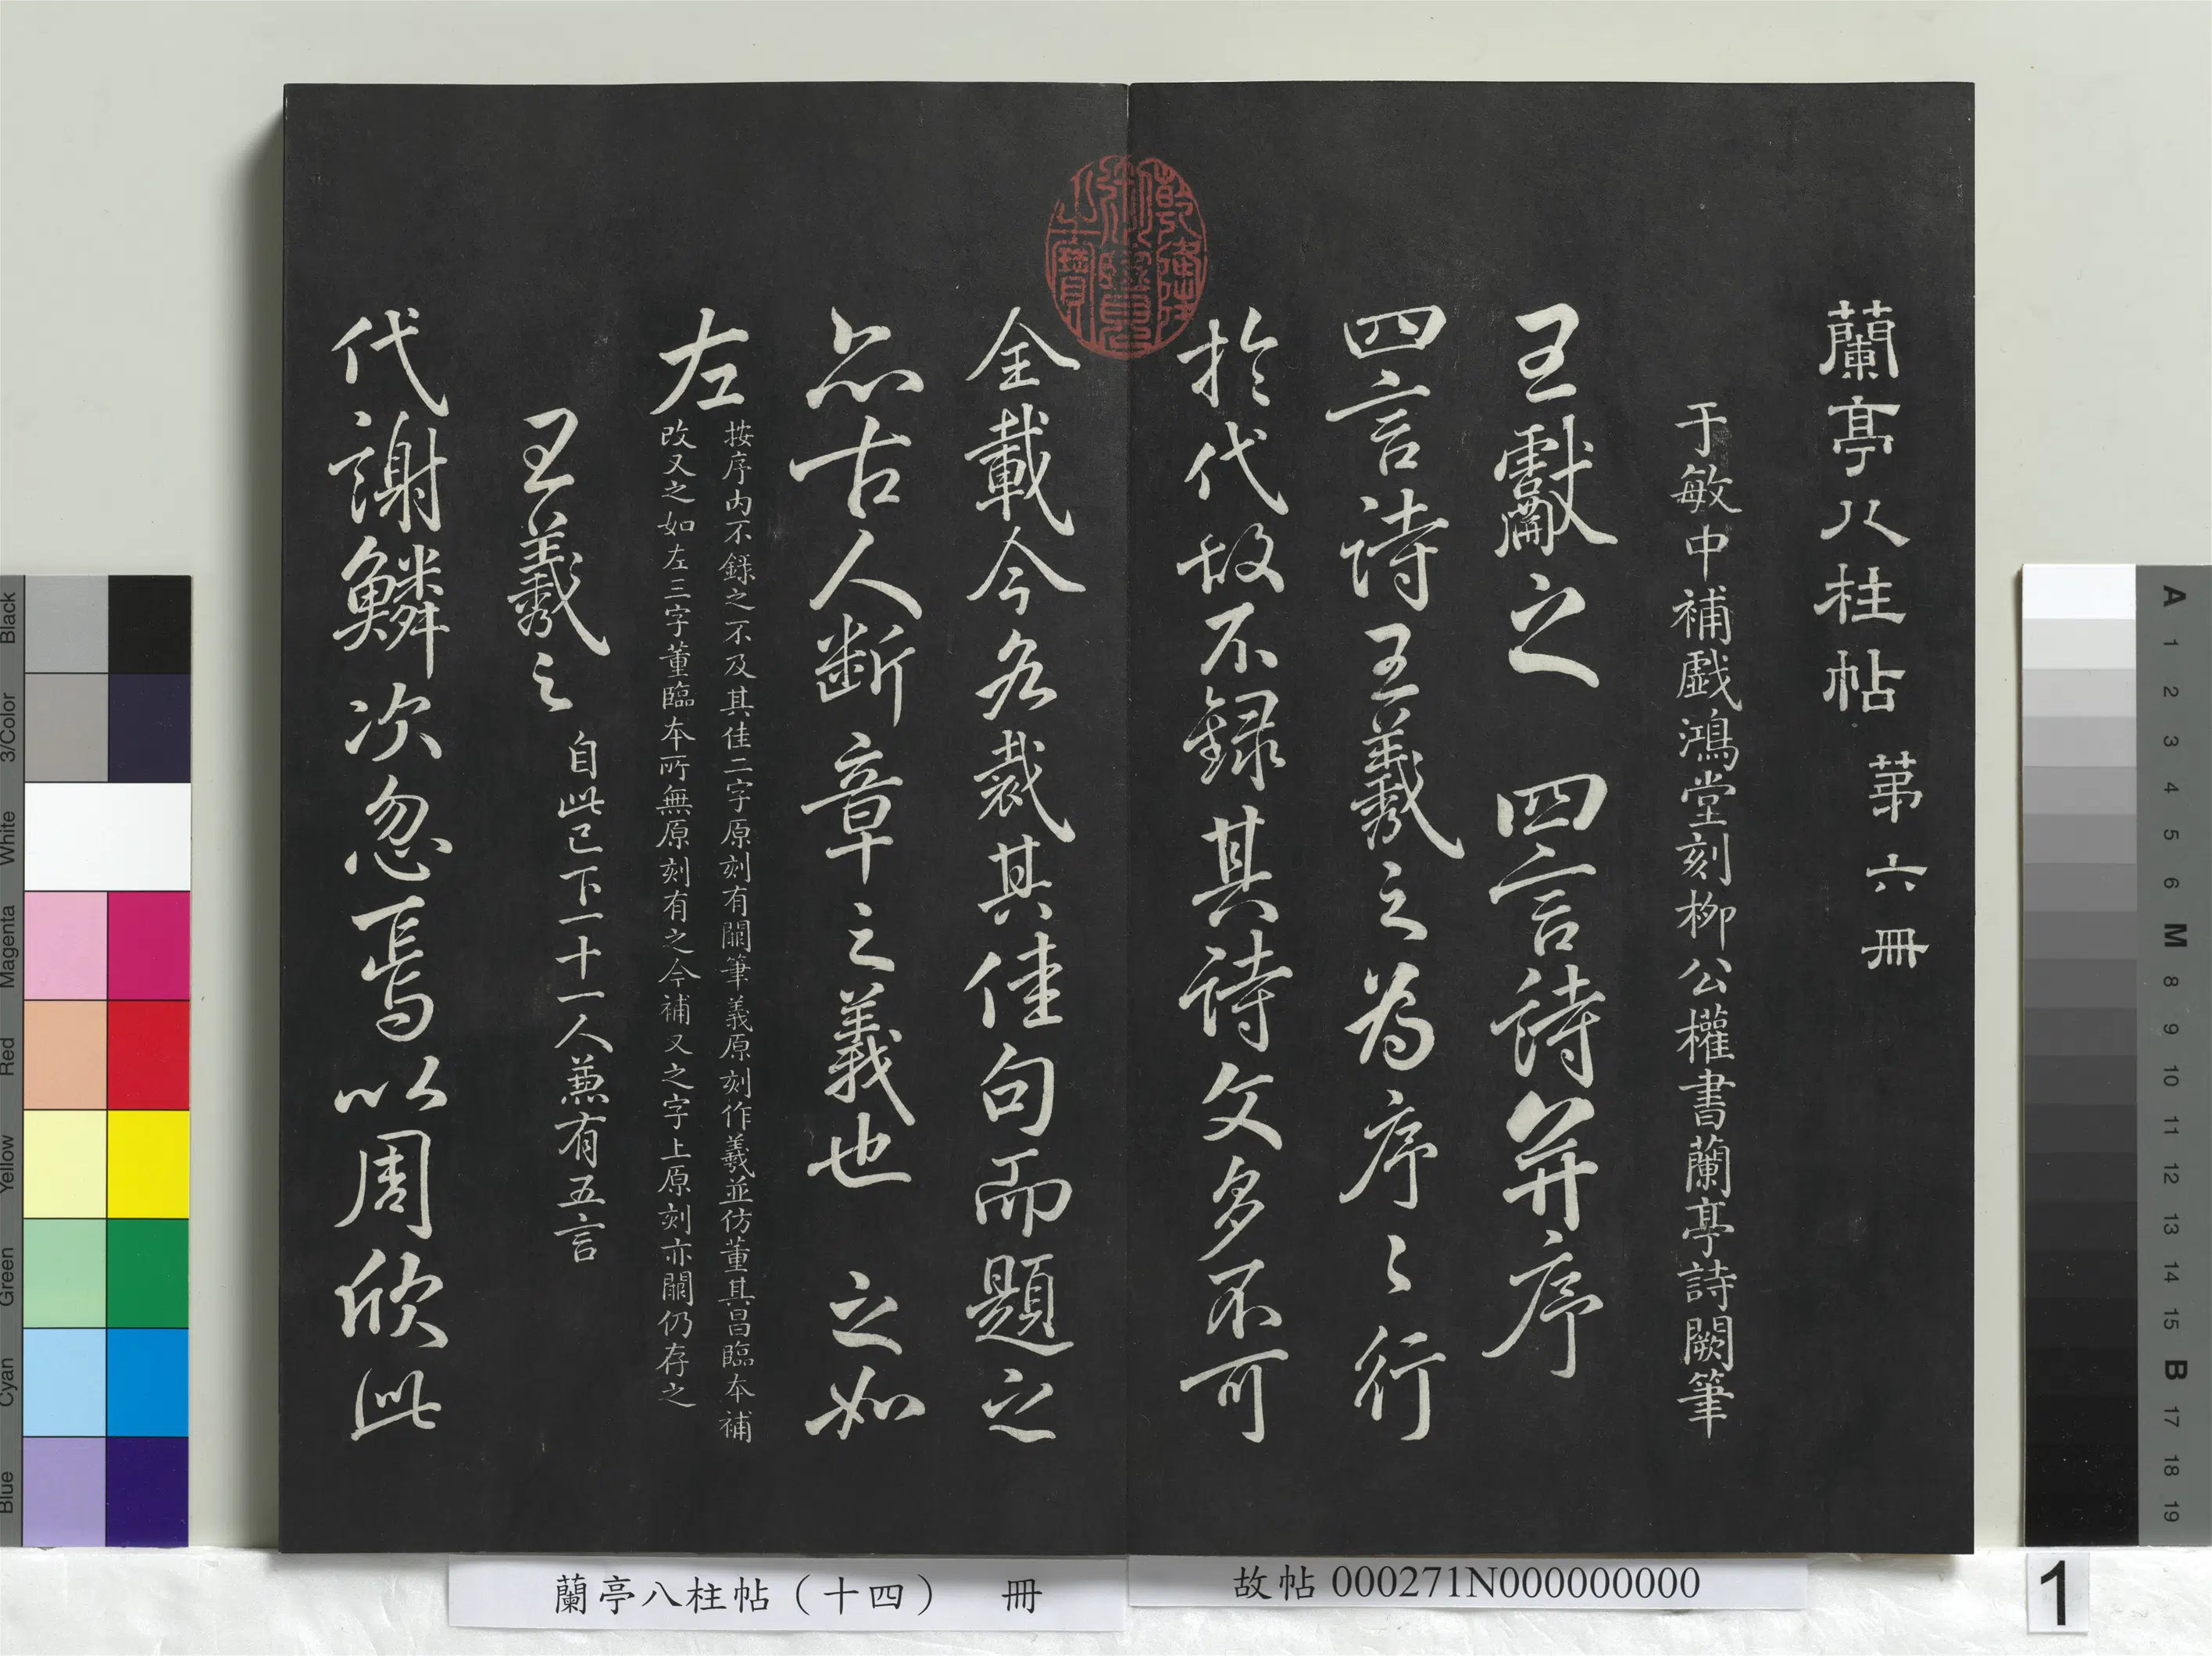 蘭亭八柱帖 第六冊
于敏中補戲鴻堂刻柳公權書蘭亭詩闕筆
王獻之 四言詩并序
四言詩王羲之為序〻行
於代故不録其詩文多不可
全載今各裁其佳句而題之
亦古人断章之義也 之如
左
按序内不錄之不及其佳二字原刻有闕筆義原刻作羲並仿董其昌臨本補
改又之如左三字董臨本所無原刻有之今補又之字上原刻亦闕仍存之
王羲之 自此已下十一人兼有五言
代謝鱗次忽焉以周欣此
乾隆御覽之寶
蘭亭八柱帖（十四） 冊
故帖 000271N000000000
1
Black
3/Color
White
Magenta
Red
Yellow
Green
Cyan
Blue
A
1
2
3
4
5
6
M
8
9
10
11
12
13
14
15
B
17
18
19